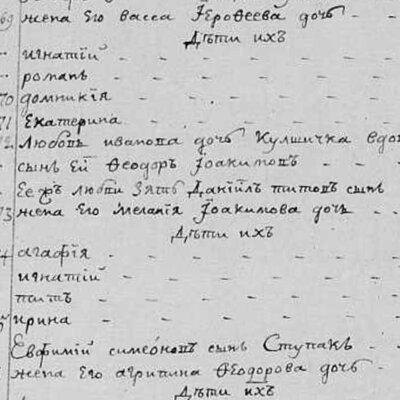 69 жена Его васса Іеровѳеева дочь
Дѣти ихъ
игнатій
романъ
70 домникія
71 Екатерина
72 Любовь иванова дочь Кулшичка вдо
сынъ Ей Ѳеодоръ Іоакимовъ
Ее жъ любви зять Даніилъ титовъ сынъ
73 жена Его меланія Іоакимова дочь
Дѣти ихъ
агафія
игнатій
титъ
ирина
Евфимій симеоновъ сынъ Ступакъ
жена Его агрипина Ѳеодорова дочь
Дѣти ихъ